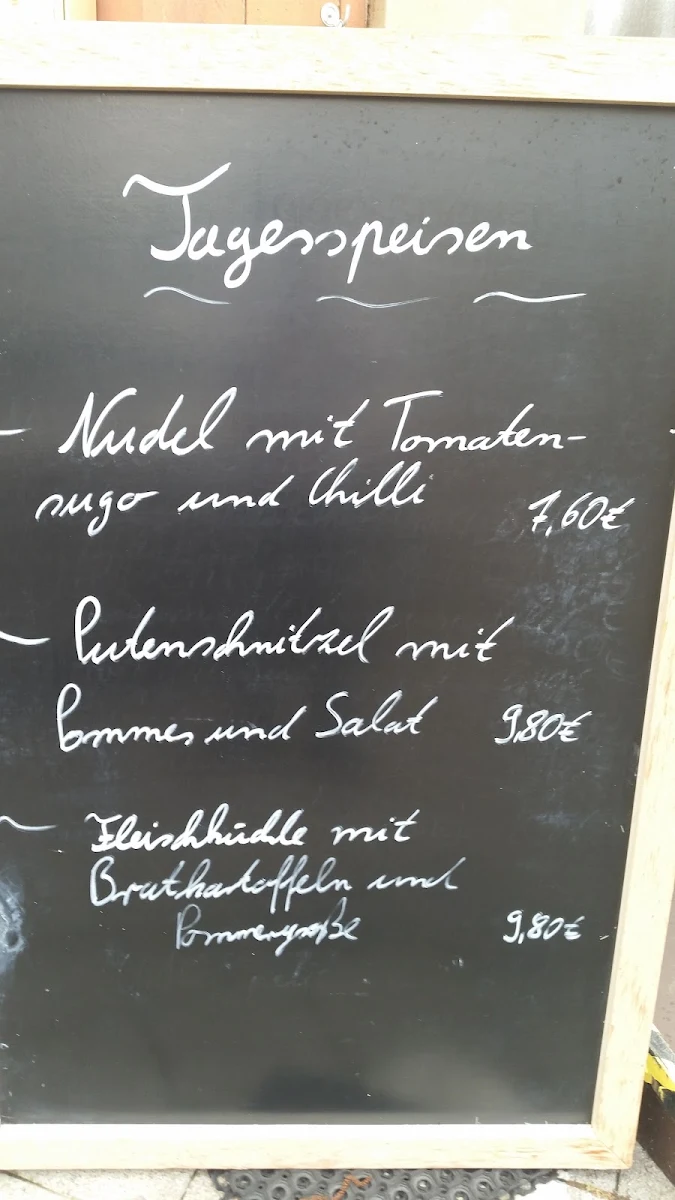 Tagesspeisen
Nudel mit Tomaten-
sugo und Chilli 7,60€
Putenschnitzel mit
Pommes und Salat 9,80€
Fleischküchle mit
Bratkartoffeln und
9,80€